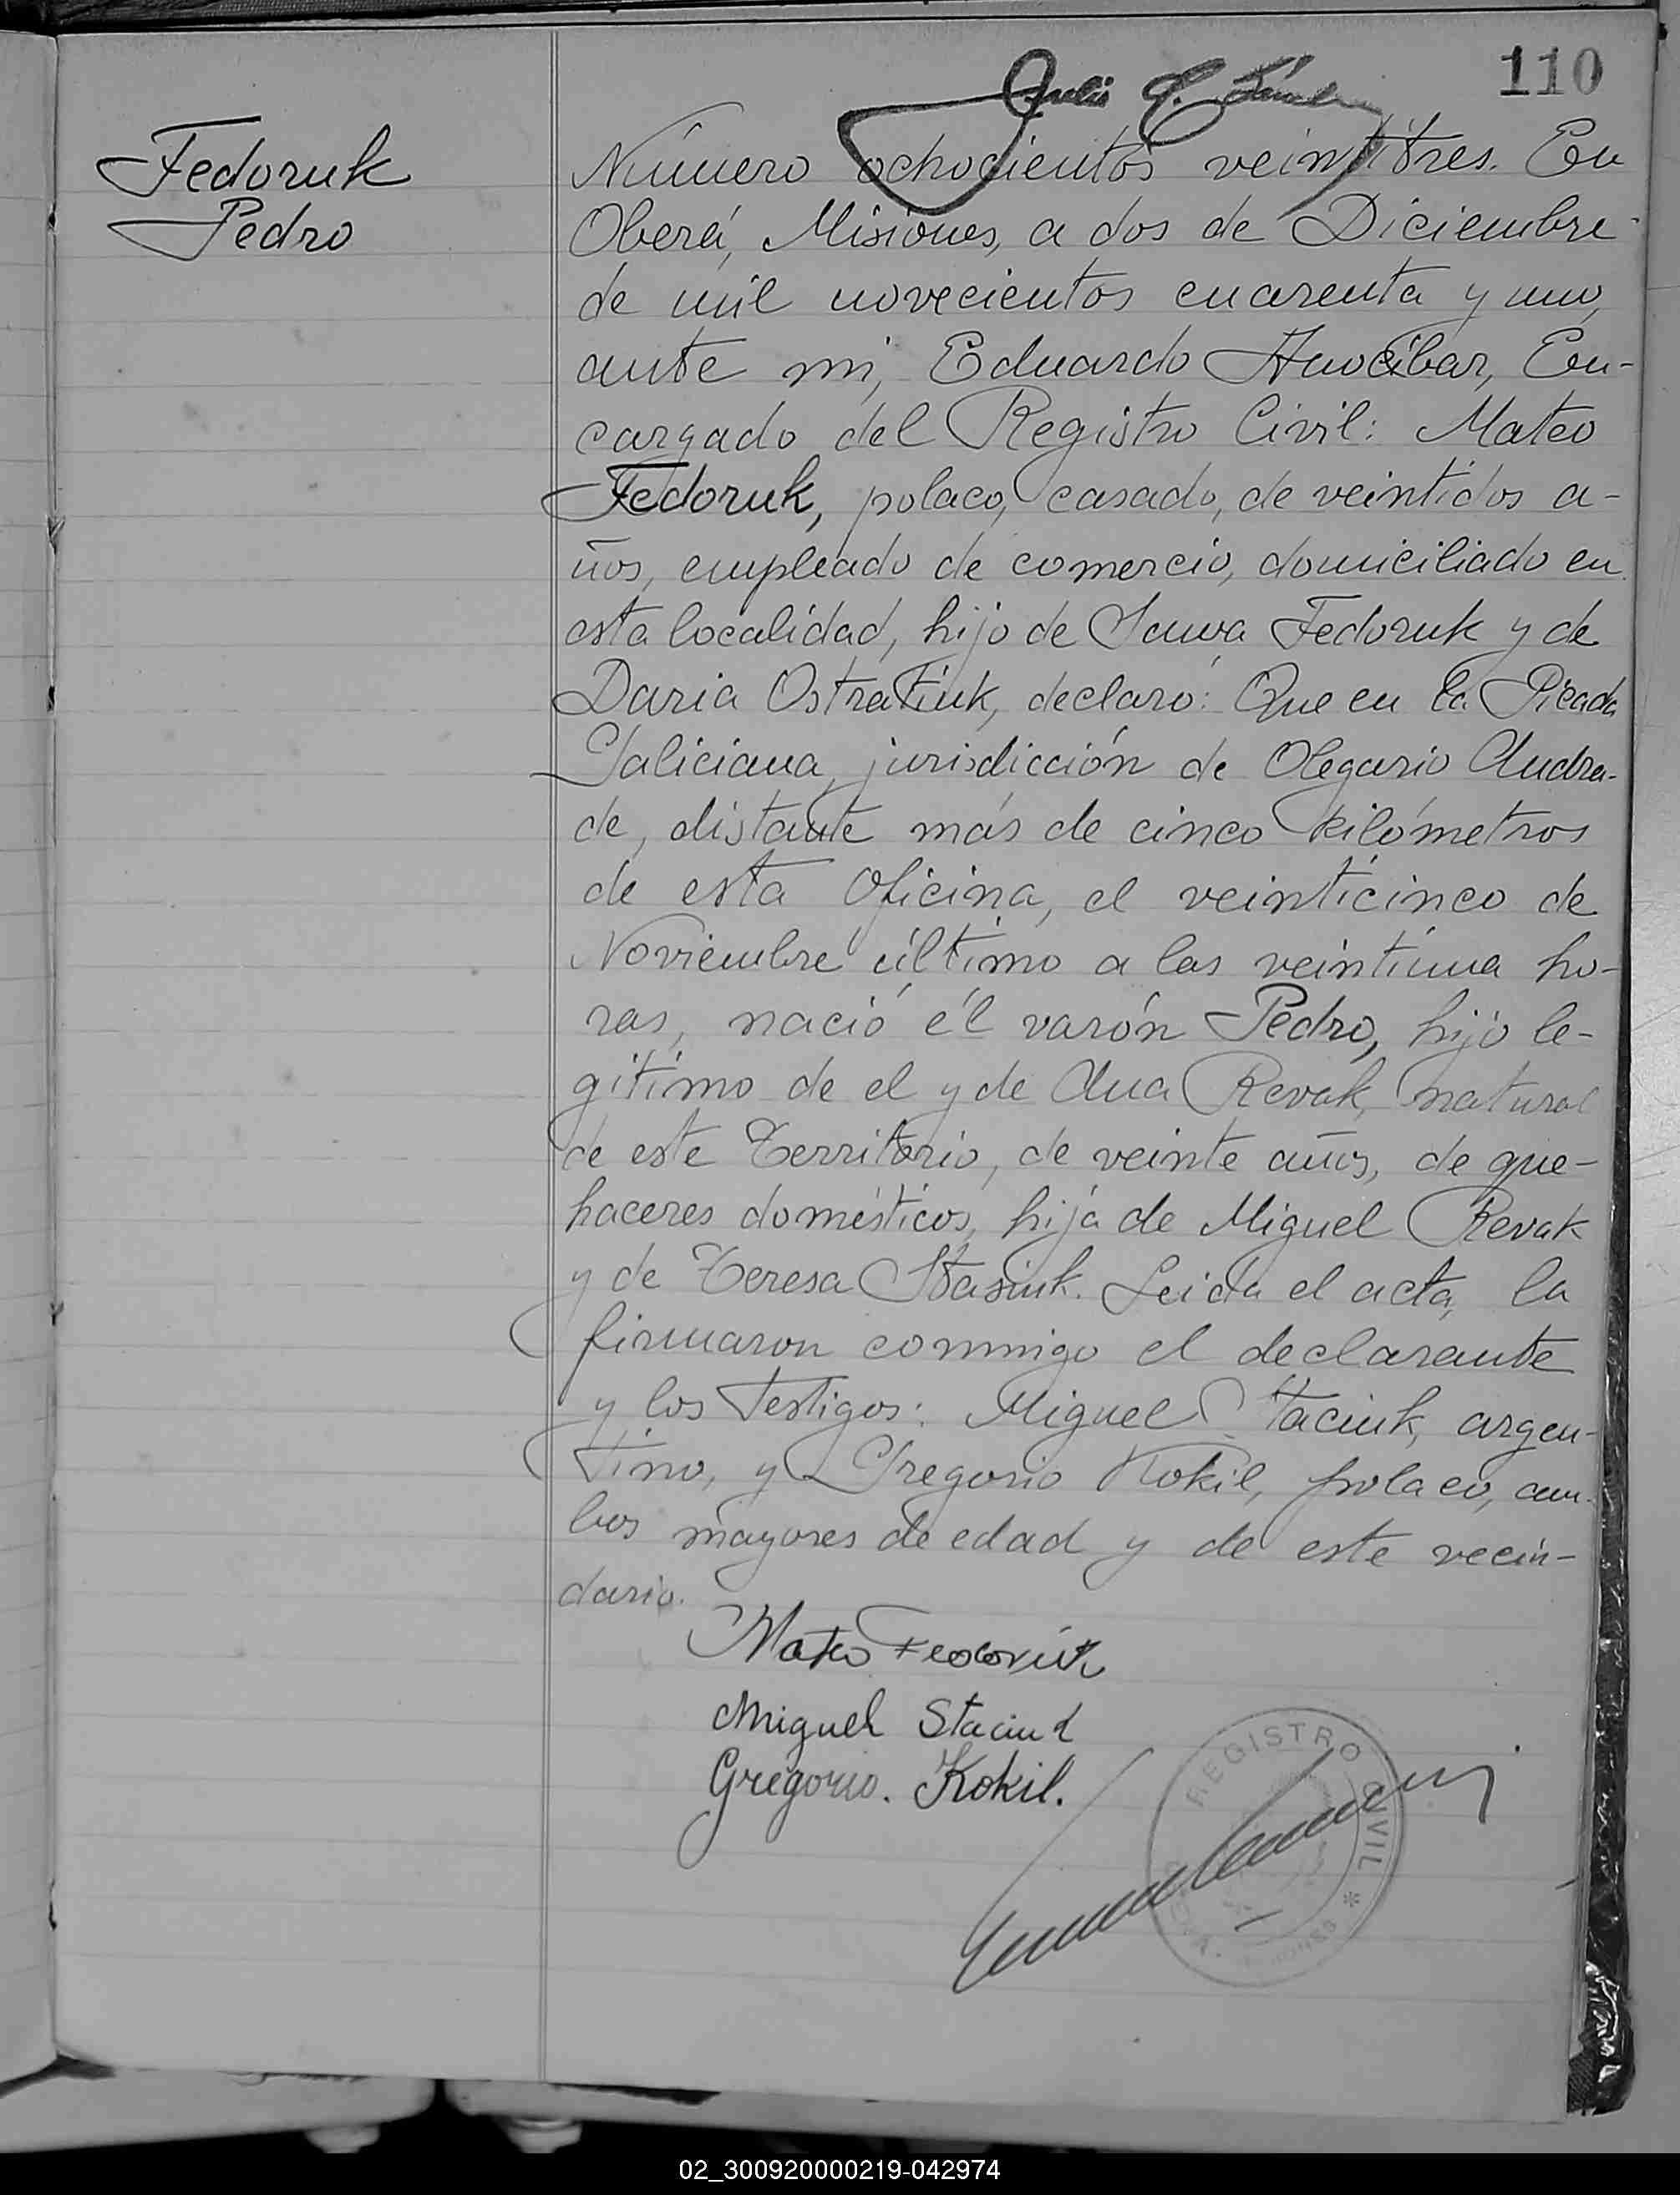 110
Fedoruk
Pedro
Número ochocientos veintitres. En
Oberá, Misiones, a dos de Diciembre
de mil novecientos cuarenta y uno,
ante mi, Eduardo Anocíbar, En-
cargado del Registro Civil: Mateo
Fedoruk, polaco, casado, de veintidos a-
ños, empleado de comercio, domiciliado en
esta localidad, hijo de Sawa Fedoruk y de
Daria Ostratiuk, declaró: Que en la Picada
Galiciana, jurisdicción de Olegario Andra-
de, distante más de cinco kilómetros
de esta Oficina, el veinticinco de
Noviembre último a las veintiuna ho-
ras, nació el varón Pedro, hijo le-
gítimo de el y de Ana Revak, natural
de este Territorio, de veinte años, de que-
haceres domésticos, hija de Miguel Revak
y de Teresa Stasiuk. Leida el acta, la
firmaron conmigo el declarante
y los testigos: Miguel Staciuk, argen-
tino, y Gregorio Kokil, polaco, am-
bos mayores de edad y de este vecin-
dario.
Mateo Fedoruk
Miguel Staciuk
Gregorio. Kokil.
REGISTRO CIVIL
02_300920000219-042974